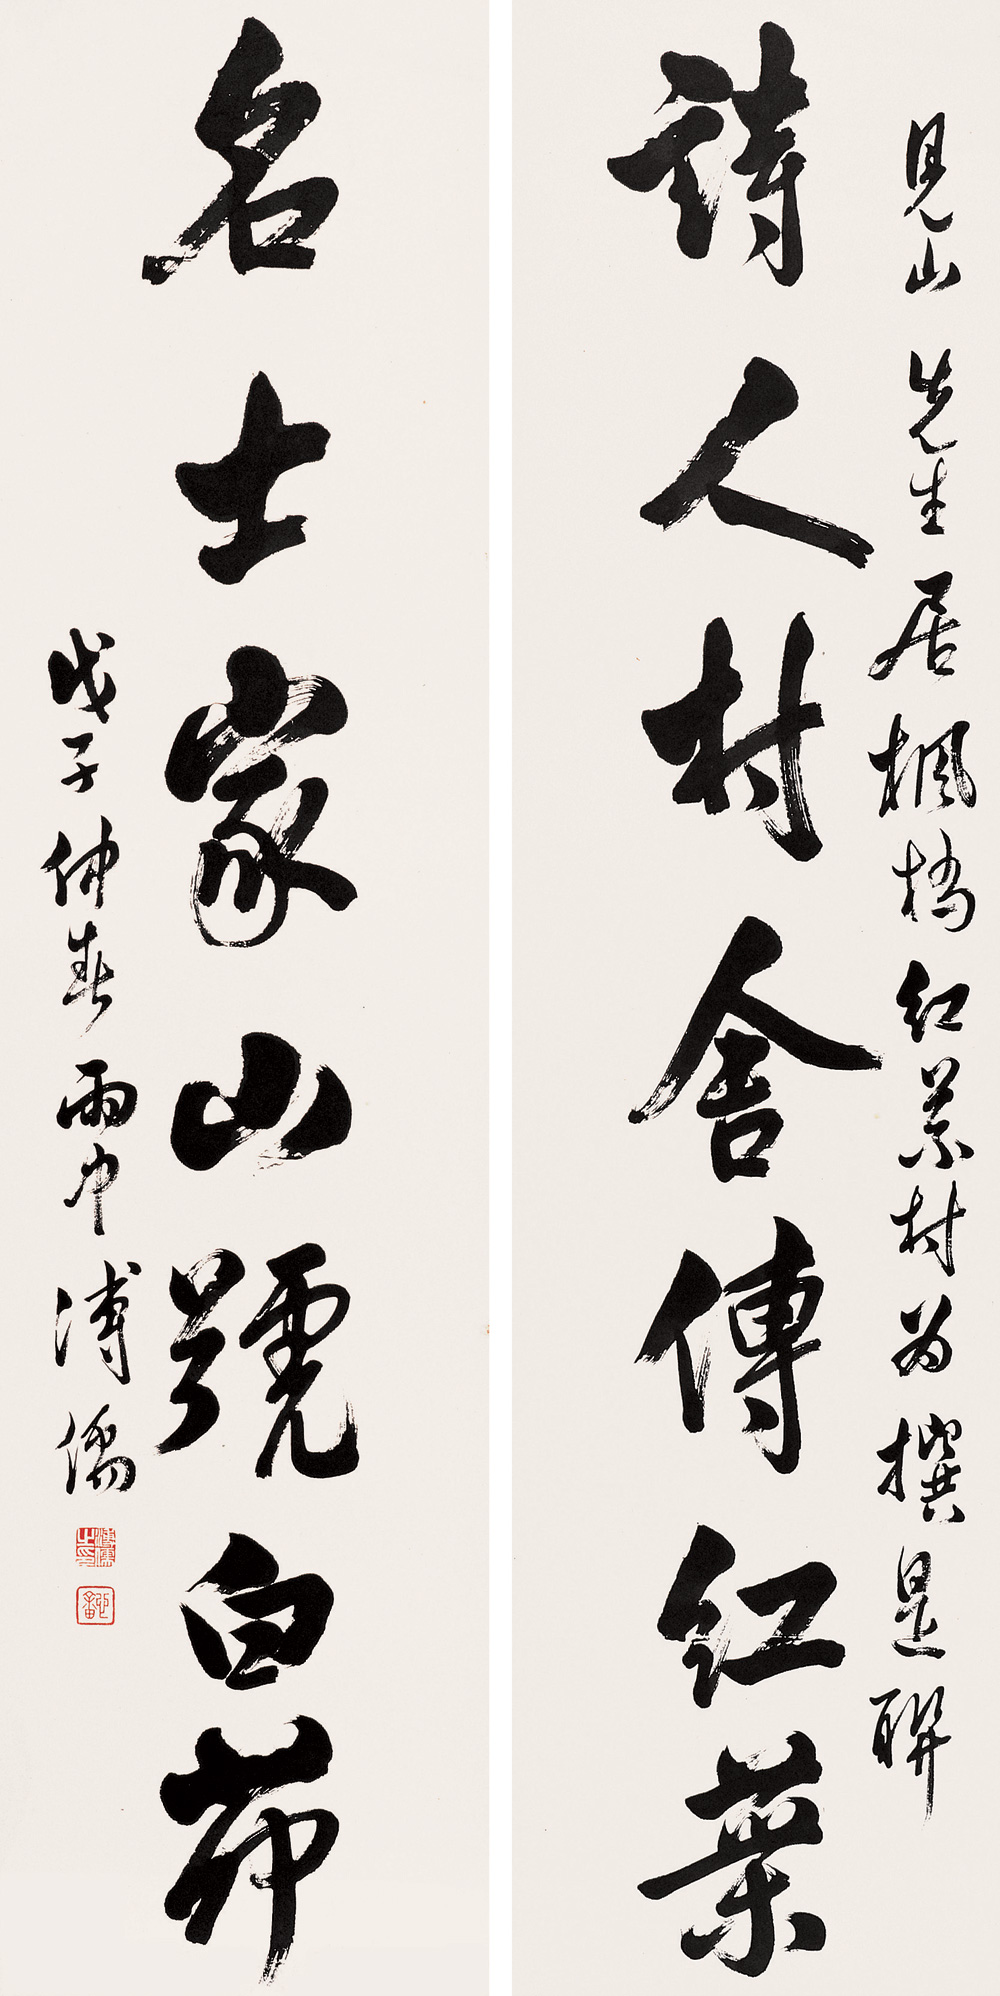 見山先生居楓橋紅葉村为撰是聯
詩人村舍傳紅葉
名士家山號白茆
戊子仲春雨中溥儒
溥儒之印
心畬